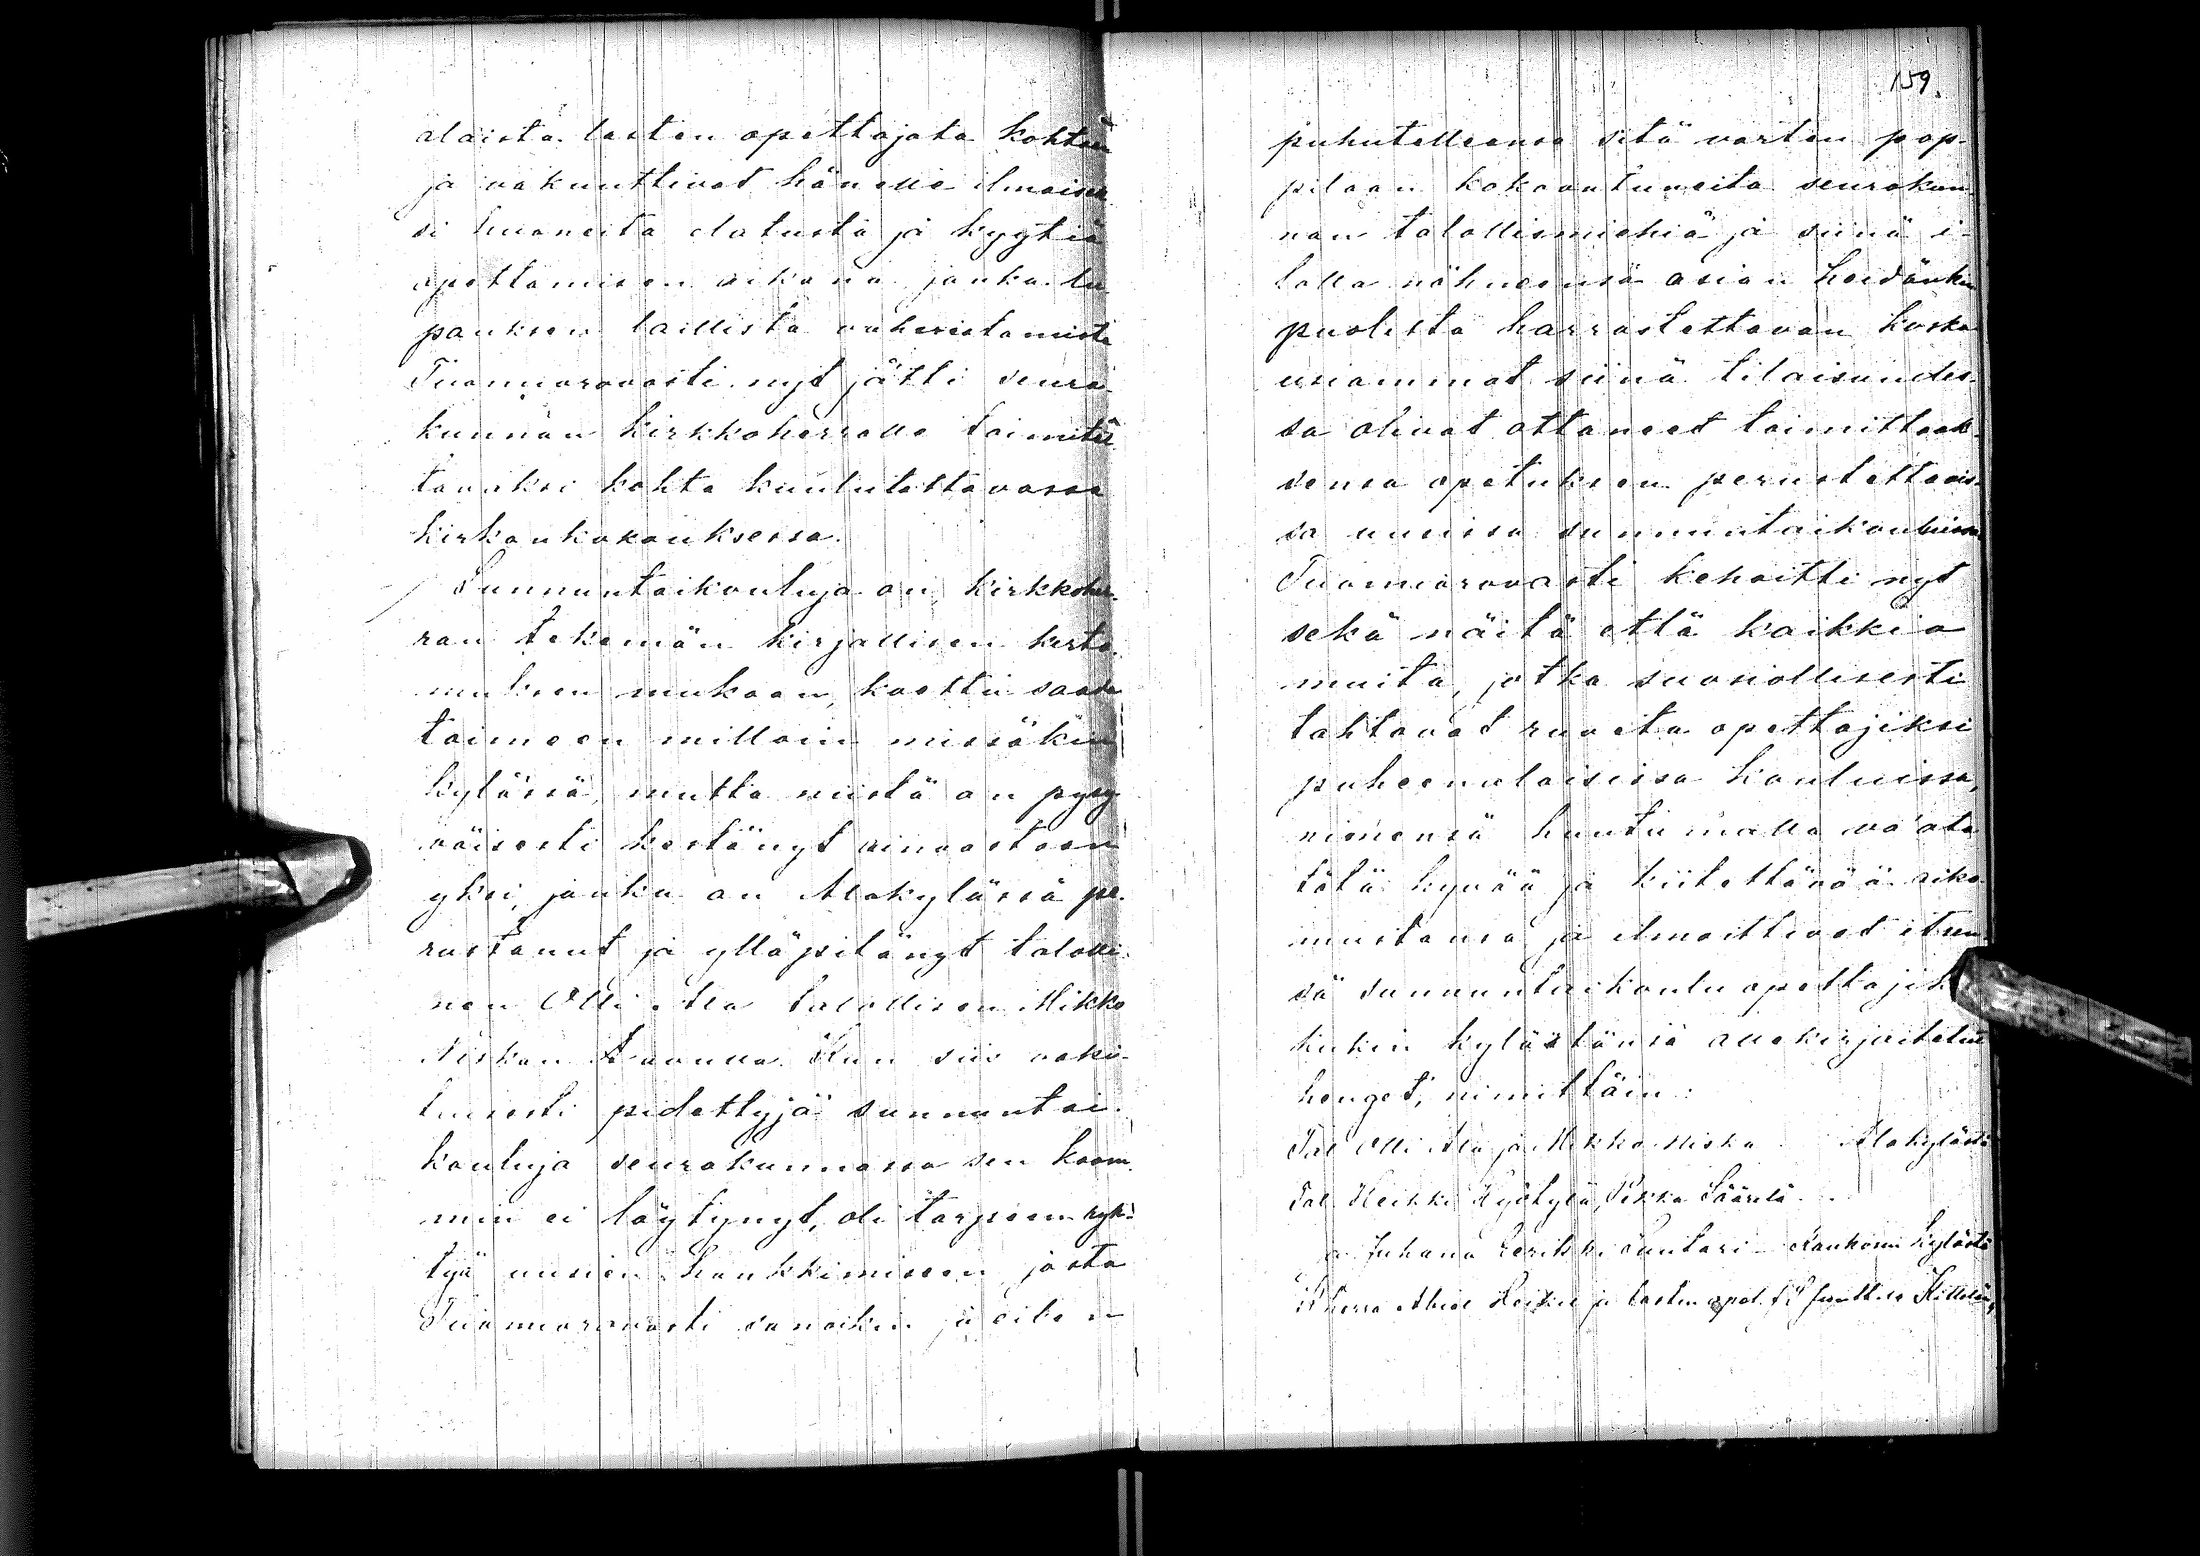 alaista lasten opettajata kohtaan
ja vakuuttivat hänelle ilmaisek
si huoneita elatusta ja kyytiä
opettamisen aikana jonka lu
pauksen laillista vahvistamista
Tuomiorovasti nyt jätti seura
kunnan kirkkoherralle toimitet
tavaksi kohta kuulutettavassa
kirkonkokouksessa.
Sunnuntaikouluja on, kirkkoher-
ran tekemän kirjallisen kerto
muksen mukaan, koettu saada
toimeen milloin missäkin
kylässä, mutta niistä on pysy
väisesti kestänyt ainoastaan
yksi, jonka on Alakylässä pe-
rustanut ja ylläpitänyt talolli-
nen Olli Ala talollisen Mikko
Niskan avulla. Kun siis vaki-
tuisesti pidettyjä sunnuntai-
kouluja seurakunnassa sen koom
min ei löytynyt, oli tarpeen ryh-
tyä uusien hankkimiseen josta
Tuomiorovasti sanoikin jo eilen
159.
puhutelleensa sitä varten pap-
pilaan kokoontuneita seurakun
nan talollismiehiä ja siinä i-
lolla nähneensä asian heidänkin
puolesta harrastettavan koska
useammat siinä tilaisuudes-
sa olivat ottaneet toimittaak-
sensa opetuksen perustettavis-
sa uusissa sunnuntaikouluissa
Tuomiorovasti kehoitti nyt
sekä näitä että kaikkia
muita, jotka suosiollisesti
tahtovat ruveta opettajiksi
puheenalaisissa kouluissa,
nimensä huutamalla
tätä hyvää ja kiitettävää aiko
mustansa ja ilmoittivat itsen
sä sunnuntaikoulu opettajik
kukin kylästänsä allekirjoitetut
henget, nimittäin:
Tal Olli Ala ja Mikko Niska Alakylästä
Tal. Heikki Kyötylä, Pekka Säärelä
a Juhana Puntari Kaukosen kylästä
Heikel ja lasten opet. Kittilän